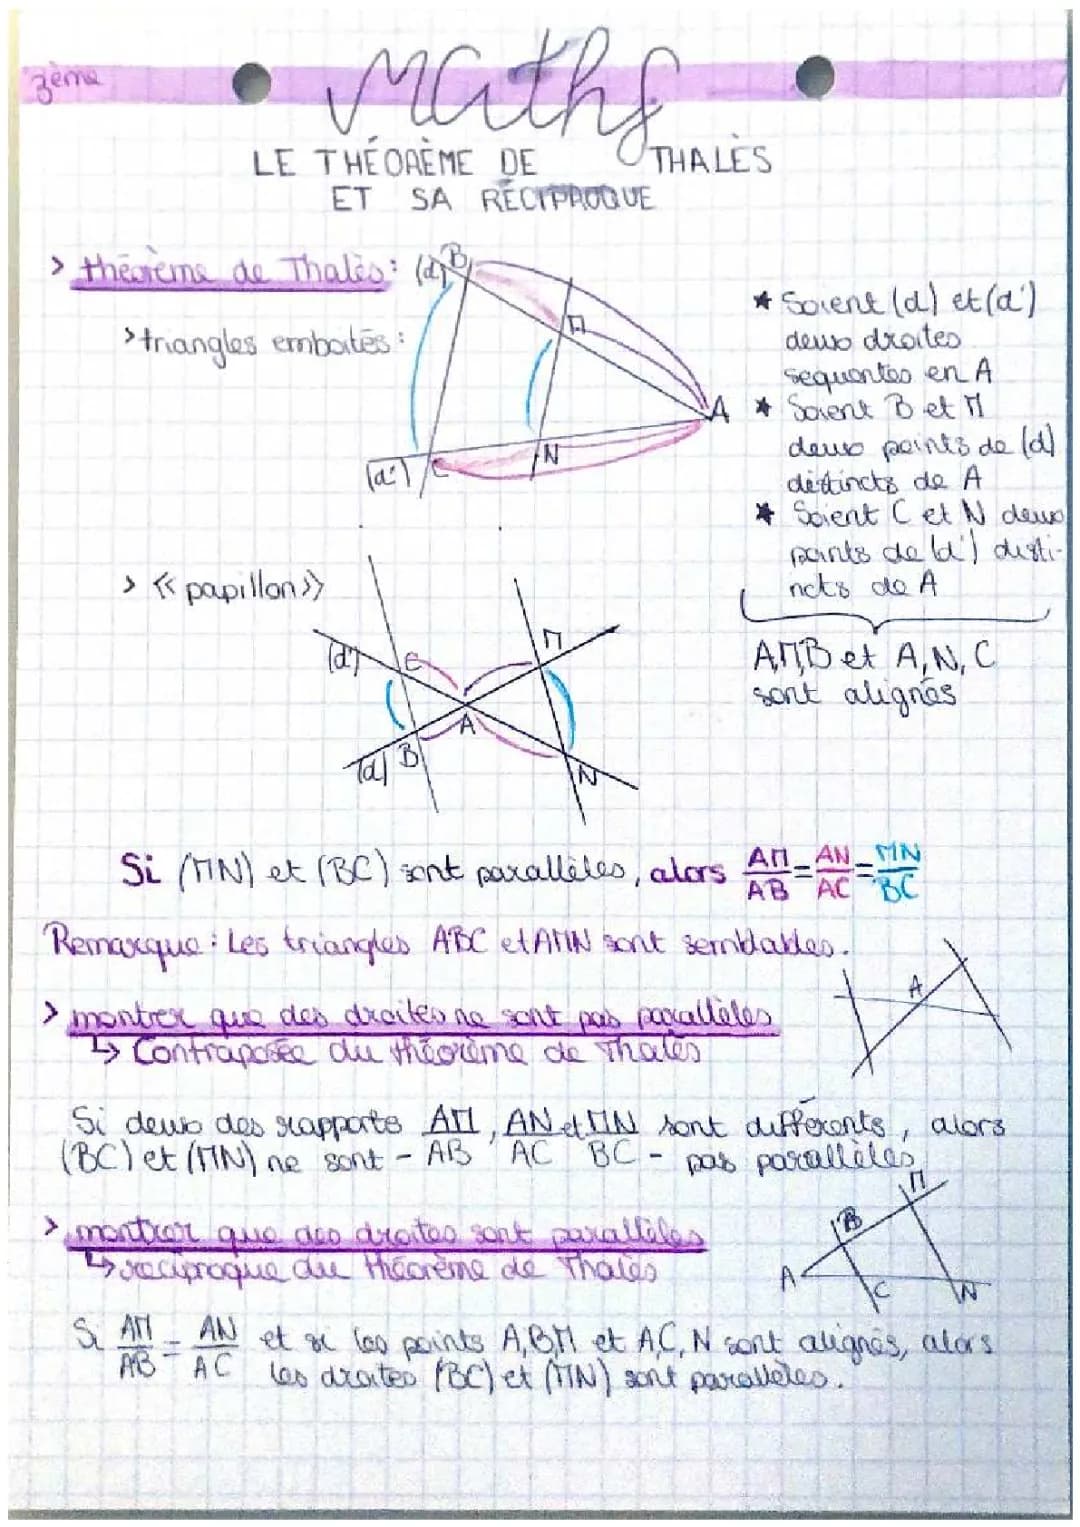 3ème
Maths
LE THÉORÈME DE THALÈS
ET SA RÉCIPROQUE
> théorème de Thalès :
(d) B
> triangles emboités :
M
A
N
(d') C
* Soient (d) et (d')
deux droites
sequentes en A
* Soient B et M
deux points de (d)
distincts de A
* Soient C et N deux
points de (d') disti-
ncts de A
A,M,B et A, N, C
sont alignés
> « papillon »
(d') C M
A
(d) B N
Si (MN) et (BC) sont parallèles, alors AM/AB = AN/AC = MN/BC
Remarque : Les triangles ABC et AMN sont semblables.
A
> montrer que des droites ne sont pas parallèles
↳ Contraposée du théorème de Thalès
Si deux des rapports AM/AB, AN/AC et MN/BC sont différents, alors
(BC) et (MN) ne sont - - pas parallèles
> montrer que des droites sont parallèles
↳ réciproque du théorème de Thalès
M
B
A
C N
Si AM/AB = AN/AC et si les points A,B,M et A,C,N sont alignés, alors
les droites (BC) et (MN) sont parallèles.